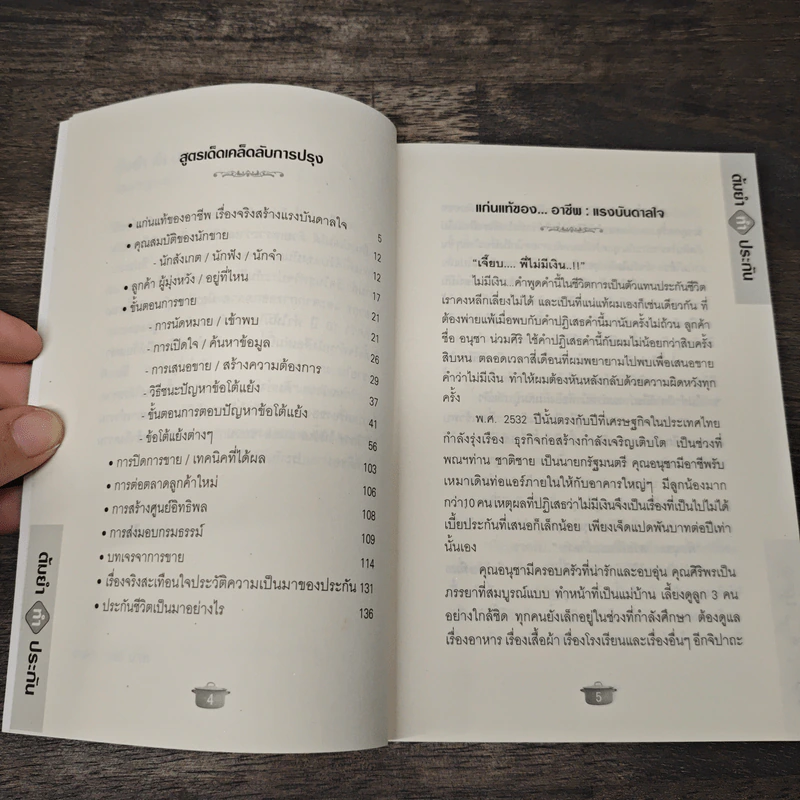 สูตรเด็ดเคล็ดลับการปรุง
• แก่นแท้ของอาชีพ เรื่องจริงสร้างแรงบันดาลใจ 5
• คุณสมบัติของนักขาย
- นักสังเกต / นักฟัง / นักจำ 12
• ลูกค้า ผู้มุ่งหวัง / อยู่ที่ไหน 12
• ขั้นตอนการขาย 17
- การนัดหมาย / เข้าพบ 21
- การเปิดใจ / ค้นหาข้อมูล 21
- การเสนอขาย / สร้างความต้องการ 26
- วิธีชนะปัญหาข้อโต้แย้ง 29
- ขั้นตอนการตอบปัญหาข้อโต้แย้ง 37
- ข้อโต้แย้งต่างๆ 41
• การปิดการขาย / เทคนิคที่ได้ผล 56
• การต่อตลาดลูกค้าใหม่ 103
• การสร้างศูนย์อิทธิพล 106
• การส่งมอบกรมธรรม์ 108
• บทเจรจาการขาย 109
• เรื่องจริงสะเทือนใจประวัติความเป็นมาของประกัน 114
• ประกันชีวิตเป็นมาอย่างไร 131
136
4
ต้มยำ ทำ ประกัน
แก่นแท้ของ... อาชีพ : แรงบันดาลใจ
"เจี๊ยบ.... พี่ไม่มีเงิน..!!"
ไม่มีเงิน...คำพูดคำนี้ในชีวิตการเป็นตัวแทนประกันชีวิต
เราคงหลีกเลี่ยงไม่ได้ และเป็นที่แน่แท้ผมเองก็เช่นเดียวกัน ที่
ต้องพ่ายแพ้เมื่อพบกับคำปฏิเสธคำนี้มานับครั้งไม่ถ้วน ลูกค้า
ชื่อ อนุชา น่วมศิริ ใช้คำปฏิเสธคำนี้กับผมไม่น้อยกว่าสิบครั้ง
สิบหน ตลอดเวลาสี่เดือนที่ผมพยายามไปพบเพื่อเสนอขาย
คำว่าไม่มีเงิน ทำให้ผมต้องหันหลังกลับด้วยความผิดหวังทุก
ครั้ง
พ.ศ. 2532 ปีนั้นตรงกับปีที่เศรษฐกิจในประเทศไทย
กำลังรุ่งเรือง ธุรกิจก่อสร้างกำลังเจริญเติบโต เป็นช่วงที่
พณฯท่าน ชาติชาย เป็นนายกรัฐมนตรี คุณอนุชามีอาชีพรับ
เหมาเดินท่อแอร์ภายในให้กับอาคารใหญ่ๆ มีลูกน้องมาก
กว่า10 คน เหตุผลที่ปฏิเสธว่าไม่มีเงินจึงเป็นเรื่องที่เป็นไปไม่ได้
เบี้ยประกันที่เสนอก็เล็กน้อย เพียงเจ็ดแปดพันบาทต่อปีเท่า
นั้นเอง
คุณอนุชามีครอบครัวที่น่ารักและอบอุ่น คุณศิริพรเป็น
ภรรยาที่สมบูรณ์แบบ ทำหน้าที่เป็นแม่บ้าน เลี้ยงดูลูก 3 คน
อย่างใกล้ชิด ทุกคนยังเล็กอยู่ในช่วงที่กำลังศึกษา ต้องดูแล
เรื่องอาหาร เรื่องเสื้อผ้า เรื่องโรงเรียนและเรื่องอื่นๆ อีกจิปาถะ
5
ต้มยำ ทำ ประกัน